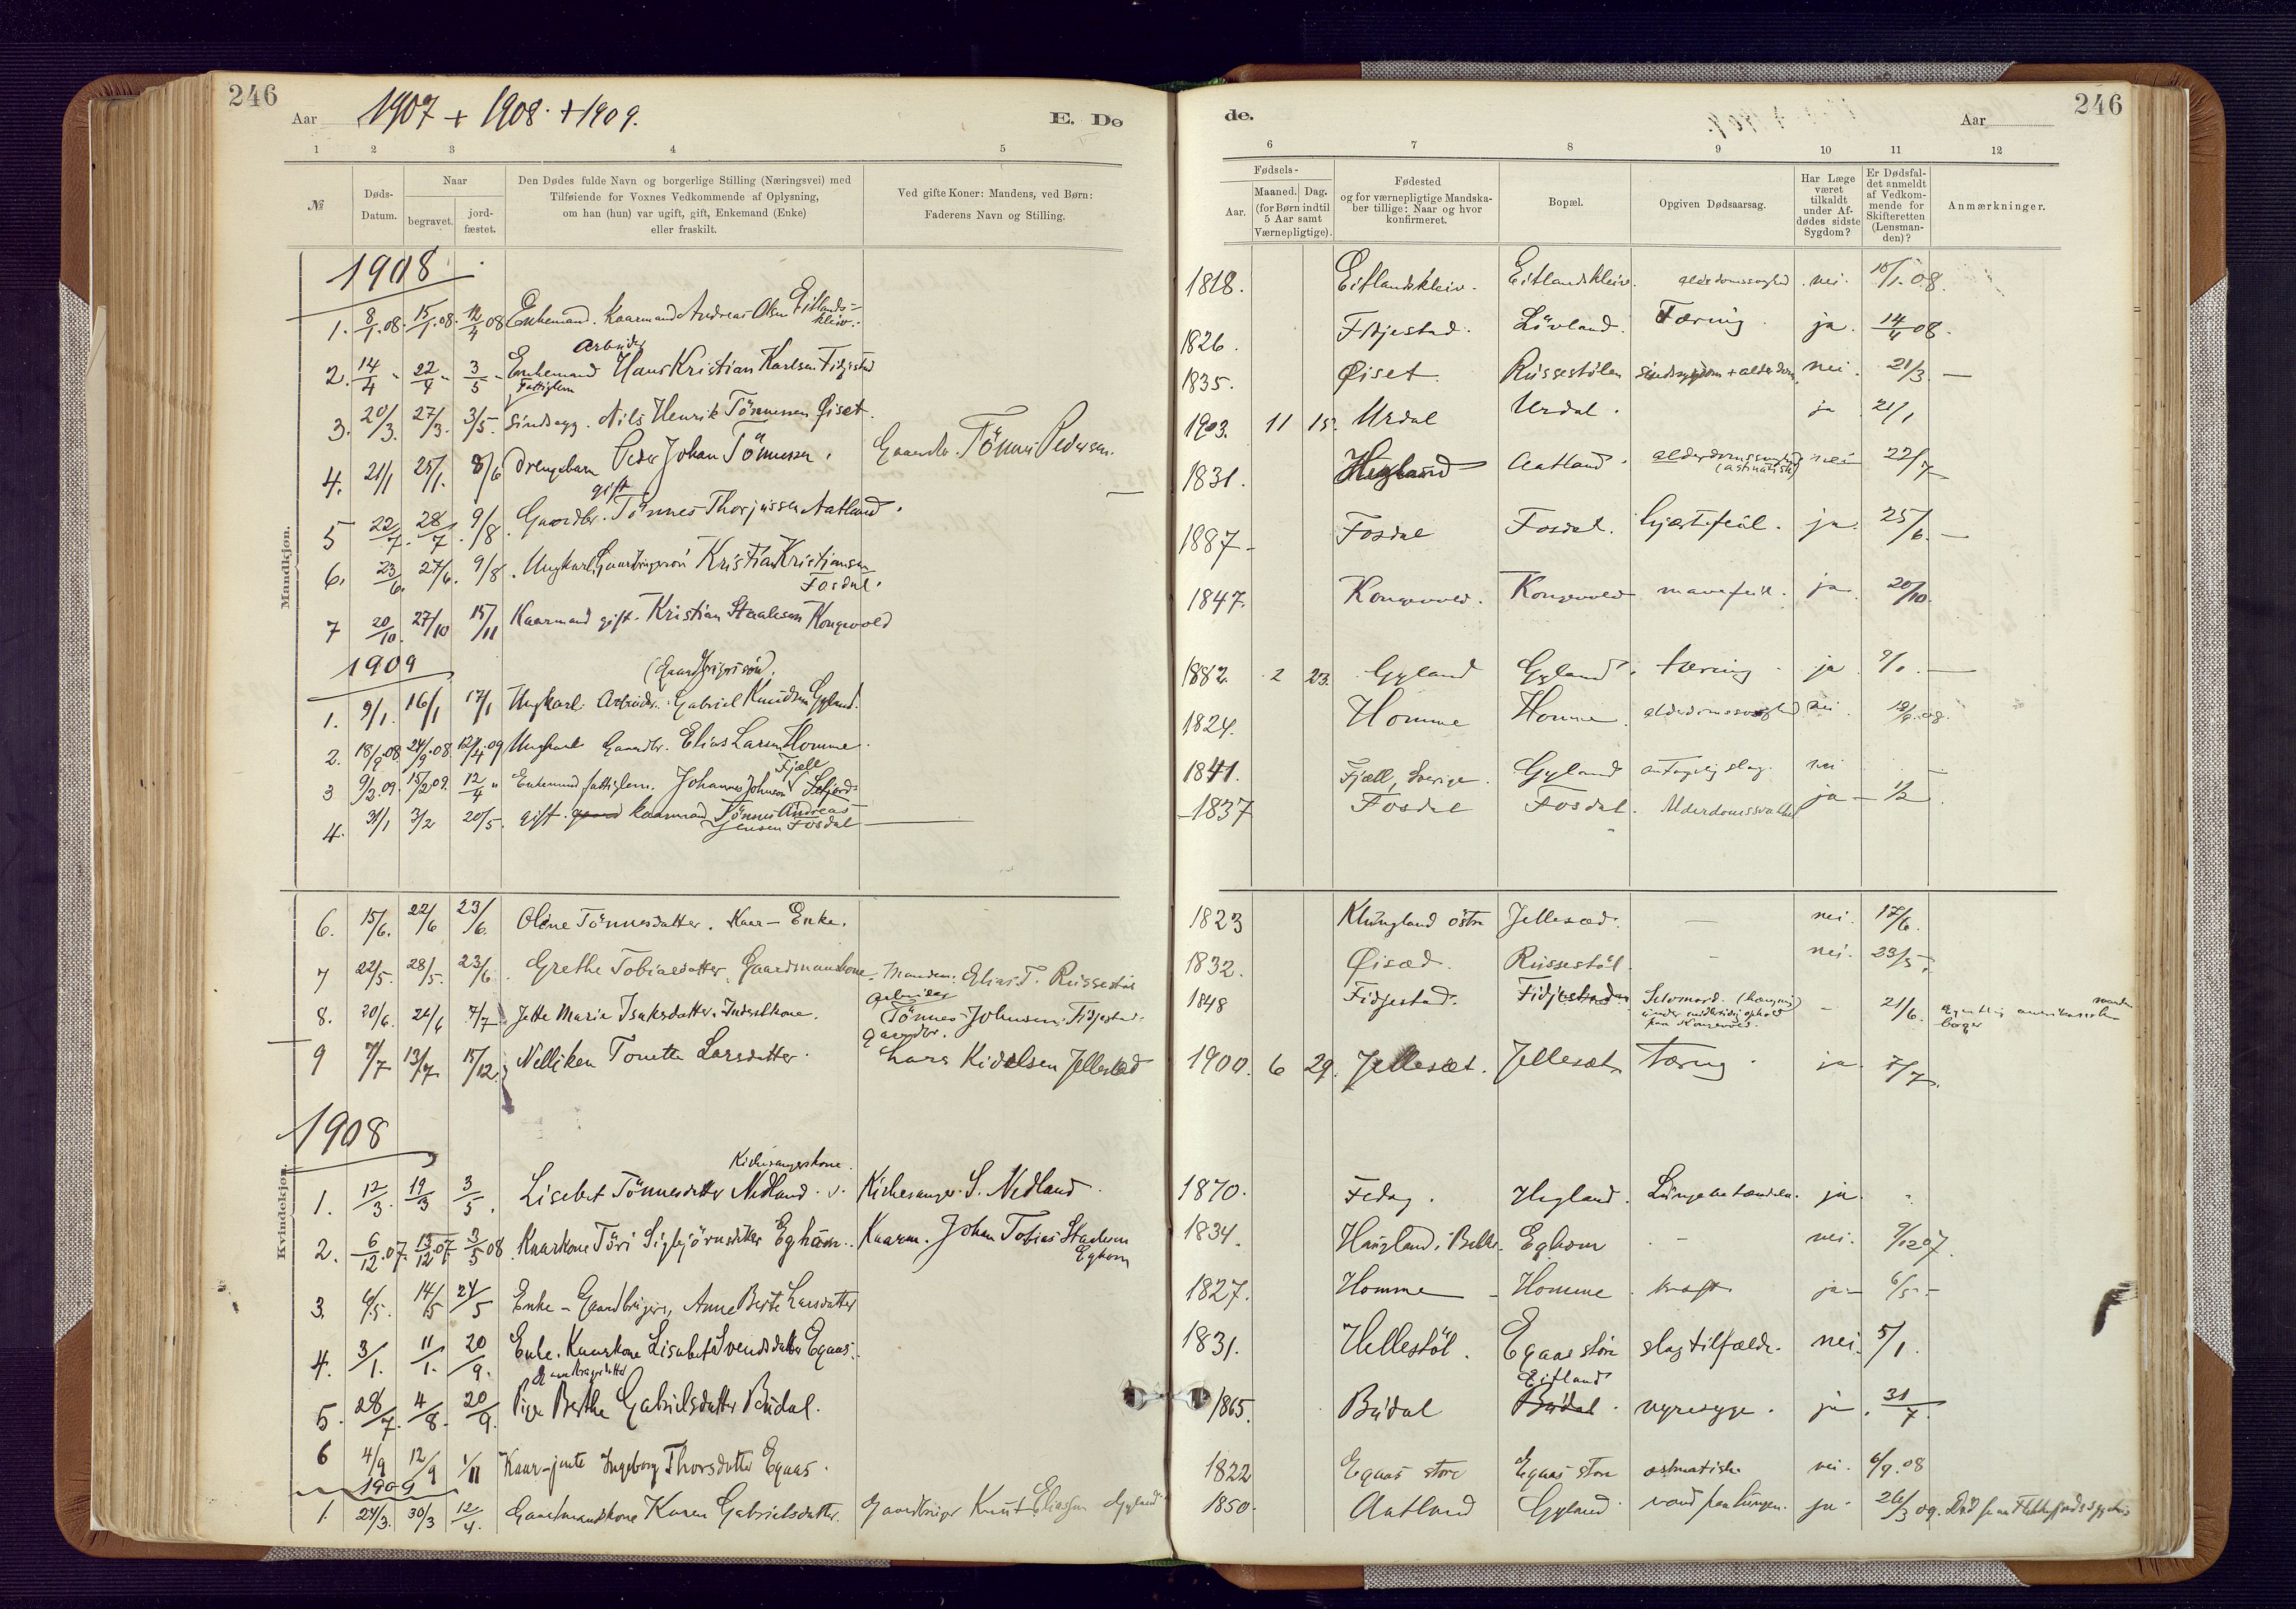 246
Aar 1907 + 1908. + 1909.
E. Dø
1 2 3 4 5
№
Døds-
Datum.
Naar
begravet.
jord-
fæstet.
Den Dødes fulde Navn og borgerlige Stilling (Næringsvei) med
Tilføiende for Voxnes Vedkommende af Oplysning,
om han (hun) var ugift, gift, Enkemand (Enke)
eller fraskilt.
Ved gifte Koner: Mandens, ved Børn:
Faderens Navn og Stilling.
Mandkjøn.
1908
1. 8/1.08. 15/1.08. 12/4 08 Enkemand. Kaarmand Andreas Olsen Eitlands-
kleiv.
Arbeider
2. 14/4 " 22/4 " 3/5 - Enkemand Hans Kristian Karlsen Fidjestad
Fattiglem
3. 20/3. 27/3. 3/5. Sindssyg. Nils Henrik Tönnessen Øiset.
4. 21/1 25/1. 8/6 Drengebarn Peder Johan Tönnessen. Gaardbr. Tönnes Pedersen.
gift
5 22/7. 28/7. 9/8. Gaardbr. Tönnes Thorjussen Aatland.
6. 23/6. 27/6. 9/8. Ungkarl, Gaardbrugersön Kristian Kristiansen
Fosdal.
7 20/10. 27/10 15/11 Kaarmand gift. Kristian Staalesen Kongevold
1909
(Gaardbrugersön.
1. 9/1. 16/1 17/1 Ungkarl. Arbeider. Gabriel Knudsen Gyland.
2. 18/9.08 24/9.08. 12/4.09 Ungkarl Gaardbr. Elias Larsen Homme.
Fjæll
3 9/2.09. 15/2 09. 12/4 " Enkemand fattiglem. Johannes Johnsen
4. 31/1 3/2 20/5. gift. kaarmand Tönnes Andreas
Jensen Fosdal
6. 15/6. 22/6 23/6. Olene Tönnesdatter. Kaar-Enke.
7 22/5. 28/5. 23/6. Grethe Tobiasdatter, Gaardmandskone. Manden: Elias T. Russestöl
Arbeider
8. 20/6. 24/6 7/7. Jette Maria Isaksdatter. Tönnes Johnsen Fidjestad.
Gaardbr.
9 7/7 13/7 15/12. Nilliken Tonette Larsdatter. Lars Kidelsen Jellestad
Kvindekjøn.
1908
Kirkesangerskone.
1. 12/3. 19/3 3/5. Lisebet Tönnesdatter Nedland. Kirkesanger S. Nedland.
2. 6/12.07. 13/12.07 3/5 08. Kaarkone Töri Sigbjörnsdatter Eghom. Kaarm. Johan Tobias Staalesen
Eghom
3. 6/5. 14/5 24/5 Enke - Gaardbruger, Anne Berte Larsdatter
4. 3/1. 11/1. 20/9. Enke. Kaarkone Lisabet Svendsdatter Egaas.
Gaardbrugerdatter
5. 28/7. 4/8. 20/9. Pige Berthe Gabrielsdatter Budal.
6 4/9 12/9 1/11 Kaar-jente Ingeborg Thorsdatter Egaas.
1909
1. 24/3. 30/3 12/4. Gaardmandskone Karen Gabrielsdatter. Gaardbruger Knut Eliassen Gyland
de.
Aar
246
6 7 8 9 10 11 12
Fødsels-
Aar.
Maaned. Dag.
(for Børn indtil
5 Aar samt
Værnepligtige).
Fødested
og for værnepligtige Mandska-
ber tillige: Naar og hvor
konfirmeret.
Bopæl.
Opgiven Dødsaarsag.
Har Læge
været
tilkaldt
under Af-
dødes sidste
Sygdom?
Er Dødsfal-
det anmeldt
af Vedkom-
mende for
Skifteretten
(Lensman-
den)?
Anmærkninger.
1818. Eitlandskleiv. Eitlandskleiv. alderdomssvaghed. nei. 10/1.08.
1826. Fidjestad. Lövland. Tæring. ja. 14/4 08.
1835. Øiset. Russestölen Sindssygdom + alderdom. nei. 21/3. —
1903. 11 15. Urdal Urdal. ja 21/1
1831. Aatland. alderdomssvaghed (astmatisk) nei 22/7
1887 - Fosdal Fosdal. hjertefeil. ja. 25/6. —
1847. Kongevold. Kongevold mavefeil. ja 20/10.
1882. 2 23. Gyland Gyland. tæring - ja 9/1. —
1824. Homme Homme. alderdomssvaghed nei. 18/9.08.
1841. Fjæll, Sverige. Gyland antagelig slag. nei
- 1837 Fosdal Fosdal. Alderdomssvakhet ja - 1/2
1823 Klungland östre Jellesæd. — nei. 17/6.
1832. Øisæd. Russestöl. - nei. 23/5.
1848 Fidjestad. Fidjestad Selvmord. (hængning) - 21/6.
under midlertidig ophold
paa Kongevold.
1900. 6 29. Jellesæt. Jellesæt. Tæring. ja 7/7.
1870. Fedog. Hegland. Lungebetændelse. ja. "
1834. Haugland i Bakke. Eghom - nei. 9/12 07.
1827. Homme - Homme. kræft. ja - 6/5 -
1831. Hellestöl. Egaas store slagtilfælde. nei. 5/1.
Eitland
1865. Budal Budal. nyresyge. ja. 31/7.
1822 Egaas store Egaas store astmatisk nei. 6/9.08
1850. Aatland Gyland vand paa lungen. ja - 26/3 09. Död paa Flekkefjords sygehus